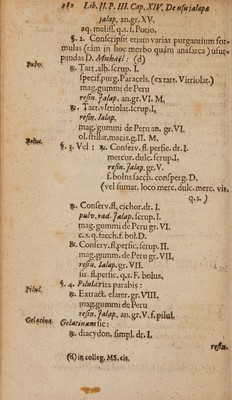 280 Lib. II. P. III. Cap. XIV. De usu jalapæ
jalap. an. gr. XV.
aq. meliss. q.s. f. Potio,
§. 2. Conscripsit etiam varias purgantium for-
mulas (tam in hoc morbo quàm anasarca) usur-
pandas D. Michael: (d)
Pulv.
℞. Tart. alb. scrup. I.
specif. purg. Paracels. (ex tart. Vitriolat.)
mag. gummi de Peru
resin. jalap. an. gr. VI. M.
℞. Tart. vitriolat. scrup. I.
resin. Jalap.
mag. gummi de Peru an. gr. VI.
ol. stillat. macis. g. II. M.
Bolus.
§. 3. Vel: ℞. Conserv. fl. persic. dr. I.
mercur. dulc. scrup. I.
resin. jalap. gr. V.
f. bolus sacch. consperg. D.
(vel sumat. loco merc. dulc. merc. vit.
q. s.)
℞. Conserv. fl. cichor. dr. I.
pulv. rad. Jalap. scrup. I.
mag. gummi de Peru gr. VI.
c. s. q. sacch. f. bol. D.
℞. Conserv. fl. persic. scrup. II.
mag. gummi. de Peru gr. VII.
resin. Jalap. gr. VII.
sir. fl. persic. q. s. F. bolus,
Pilul.
§. 4. Pilulas ita parabis:
℞. Extract. elater. gr. VIII.
mag. gummi de Peru
resin. jalap. an. gr. V. f. pilul.
Gelatina.
Gelatinam sic:
℞. diacydon. simpl. dr. I.
resin.
(d) in colleg. MS. cit.